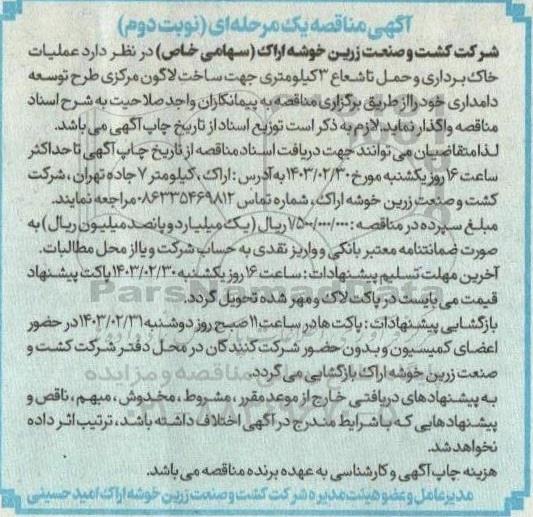 آگهی مناقصه یک مرحله‌ای (نوبت دوم)
شرکت کشت و صنعت زرین خوشه اراک (سهامی خاص) در نظر دارد عملیات
خاک برداری و حمل تا شعاع ۳ کیلومتری جهت ساخت لاگون مرکزی طرح توسعه
دامداری خود را از طریق برگزاری مناقصه به پیمانکاران واجد صلاحیت به شرح اسناد
مناقصه واگذار نماید. لازم به ذکر است توزیع اسناد از تاریخ چاپ آگهی می باشد.
لذا متقاضیان می توانند جهت دریافت اسناد مناقصه از تاریخ چاپ آگهی تا حداکثر
ساعت ۱۶ روز یکشنبه مورخ ۱۴۰۳/۰۲/۳۰ به آدرس : اراک ، کیلومتر ۷ جاده تهران ، شرکت
کشت و صنعت زرین خوشه اراک ، شماره تماس ۰۸۶۳۳۵۴۶۹۸۱۲ مراجعه نمایند.
مبلغ سپرده در مناقصه : ۷۵۰۰/۰۰۰/۰۰۰ ریال ( یک میلیارد و پانصد میلیون ریال ) به
صورت ضمانتنامه معتبر بانکی و واریز نقدی به حساب شرکت و یا از محل مطالبات.
آخرین مهلت تسلیم پیشنهادات : ساعت ۱۶ روز یکشنبه ۱۴۰۳/۰۲/۳۰ پاکت پیشنهاد
قیمت می بایست در پاکت لاک و مهر شده تحویل گردد.
بازگشایی پیشنهادات : پاکت ها در ساعت ۱۱ صبح روز دوشنبه ۱۴۰۳/۰۲/۳۱ در حضور
اعضای کمیسیون و بدون حضور شرکت کنندگان در محل دفتر شرکت کشت و
صنعت زرین خوشه اراک بازگشایی می گردد.
به پیشنهادهای دریافتی خارج از موعد مقرر ، مشروط ، مخدوش ، مبهم ، ناقص و
پیشنهادهایی که با شرایط مندرج در آگهی اختلاف داشته باشد ، ترتیب اثر داده
نخواهد شد.
هزینه چاپ آگهی و کارشناسی به عهده برنده مناقصه می باشد.
مدیرعامل و عضو هیئت مدیره شرکت کشت و صنعت زرین خوشه اراک امید حسینی
ParsNamadData